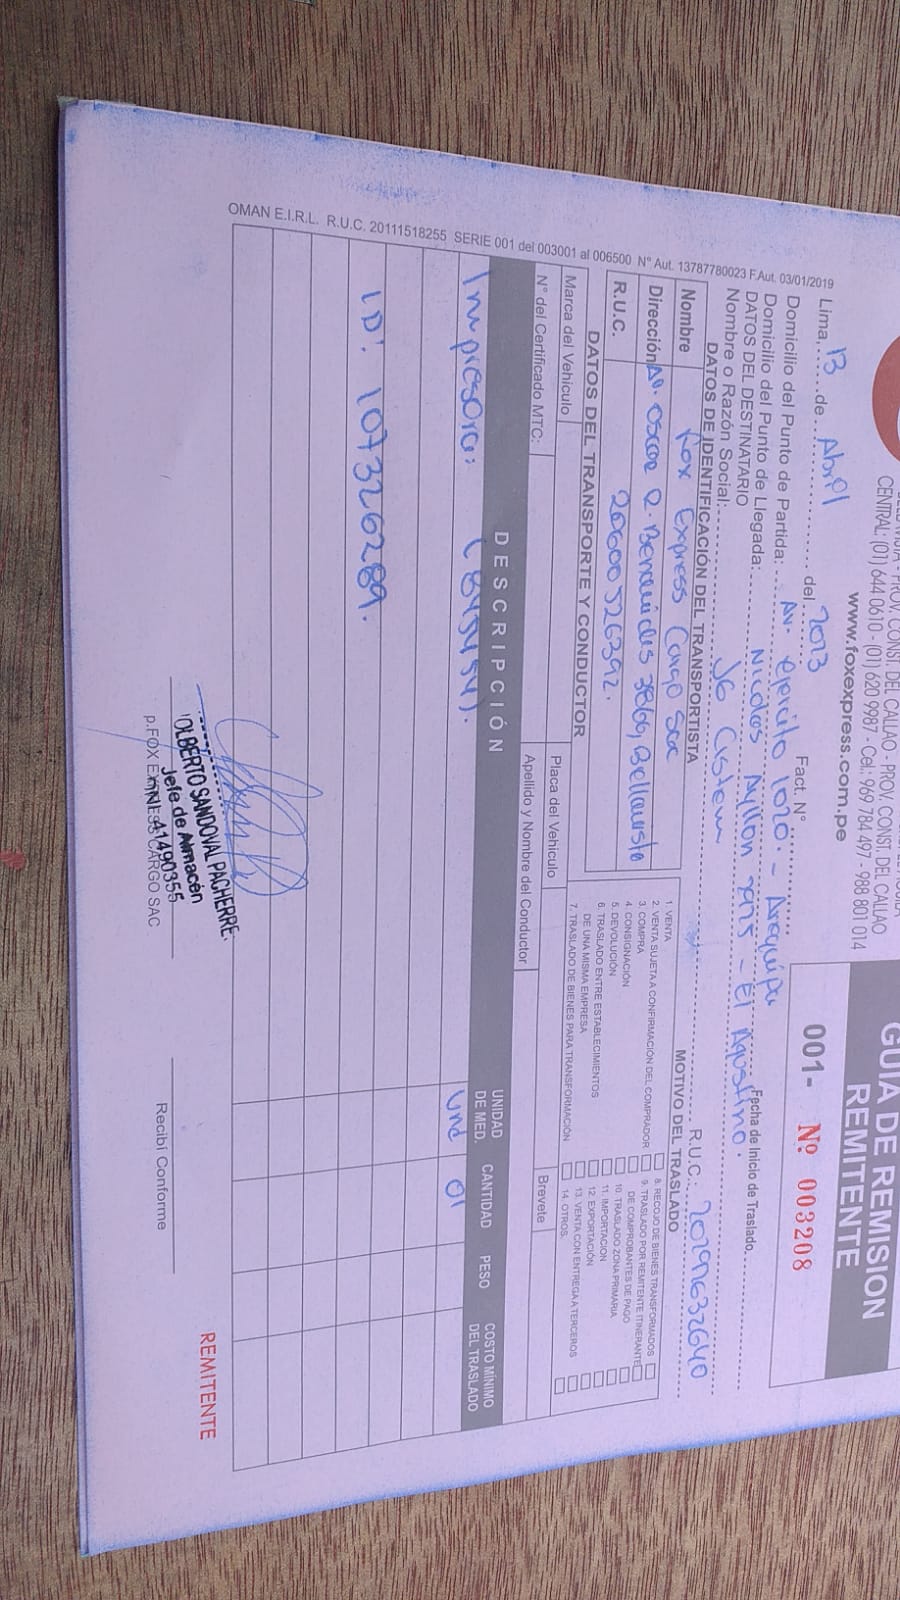 CENTRAL: (01) 644 0610 - (01) 620 9987 - Cel.: 969 784 497 - 988 801 014
www.foxexpress.com.pe
GUIA DE REMISION
REMITENTE
001- Nº 003208
Lima, 13 de Abril del 2023 Fact. N°
Domicilio del Punto de Partida: Av. Ejercito 1020 - Arequipa
Fecha de Inicio de Traslado.
Domicilio del Punto de Llegada: Nicolas Ayllon 2925 - El Agustino.
DATOS DEL DESTINATARIO
Nombre o Razón Social: R.U.C.
DATOS DE IDENTIFICACIÓN DEL TRANSPORTISTA
Nombre Fox Express Cargo Sac
Dirección Av. Oscar R. Benavides 3866, Bellavista
R.U.C. 20600526392.
DATOS DEL TRANSPORTE Y CONDUCTOR
Marca del Vehiculo Placa del Vehiculo
N° del Certificado MTC: Apellido y Nombre del Conductor Brevete
MOTIVO DEL TRASLADO
1. VENTA
2. VENTA SUJETA A CONFIRMACIÓN DEL COMPRADOR
3. COMPRA
4. CONSIGNACIÓN
5. DEVOLUCIÓN
6. TRASLADO ENTRE ESTABLECIMIENTOS
DE UNA MISMA EMPRESA
7. TRASLADO DE BIENES PARA TRANSFORMACIÓN
8. RECOJO DE BIENES TRANSFORMADOS
9. TRASLADO POR REMITENTE ITINERANTE
DE COMPROBANTES DE PAGO
10. TRASLADO ZONA PRIMARIA
11. IMPORTACION
12. EXPORTACIÓN
13. VENTA CON ENTREGA A TERCEROS
14. OTROS.
DESCRIPCIÓN UNIDAD DE MED. CANTIDAD PESO COSTO MÍNIMO DEL TRASLADO
Impresora: (845454). Und 01
ID: 107326289.
OLBERTO SANDOVAL PACHERRE
Jefe de Almacén
DNI 41490355
p.FOX EXPRESS CARGO SAC
Recibí Conforme
REMITENTE
OMAN E.I.R.L. R.U.C. 20111518255 SERIE 001 del 003001 al 006500 N° Aut. 13787780023 F.Aut. 03/01/2019